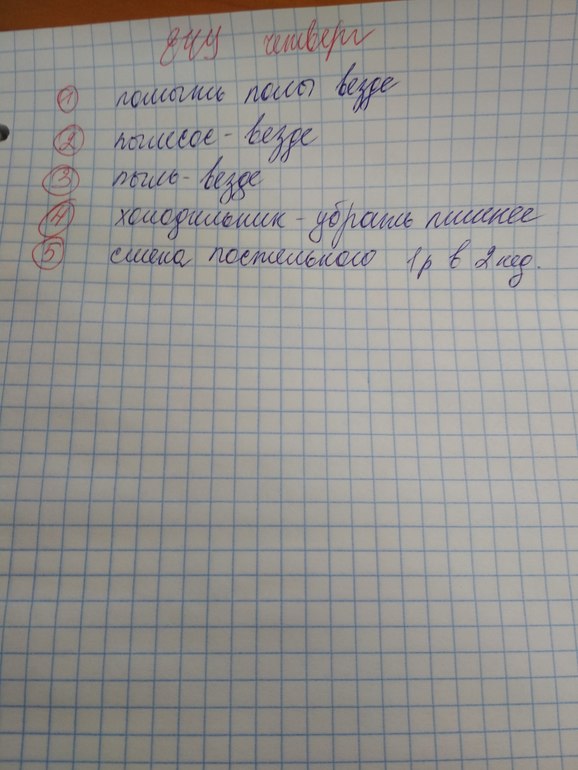 ЕЧУ четверг
1 помыть полы везде
2 пылесос - везде
3 пыль - везде
4 холодильник - убрать лишнее
5 смена постельного 1 р в 2 нед.